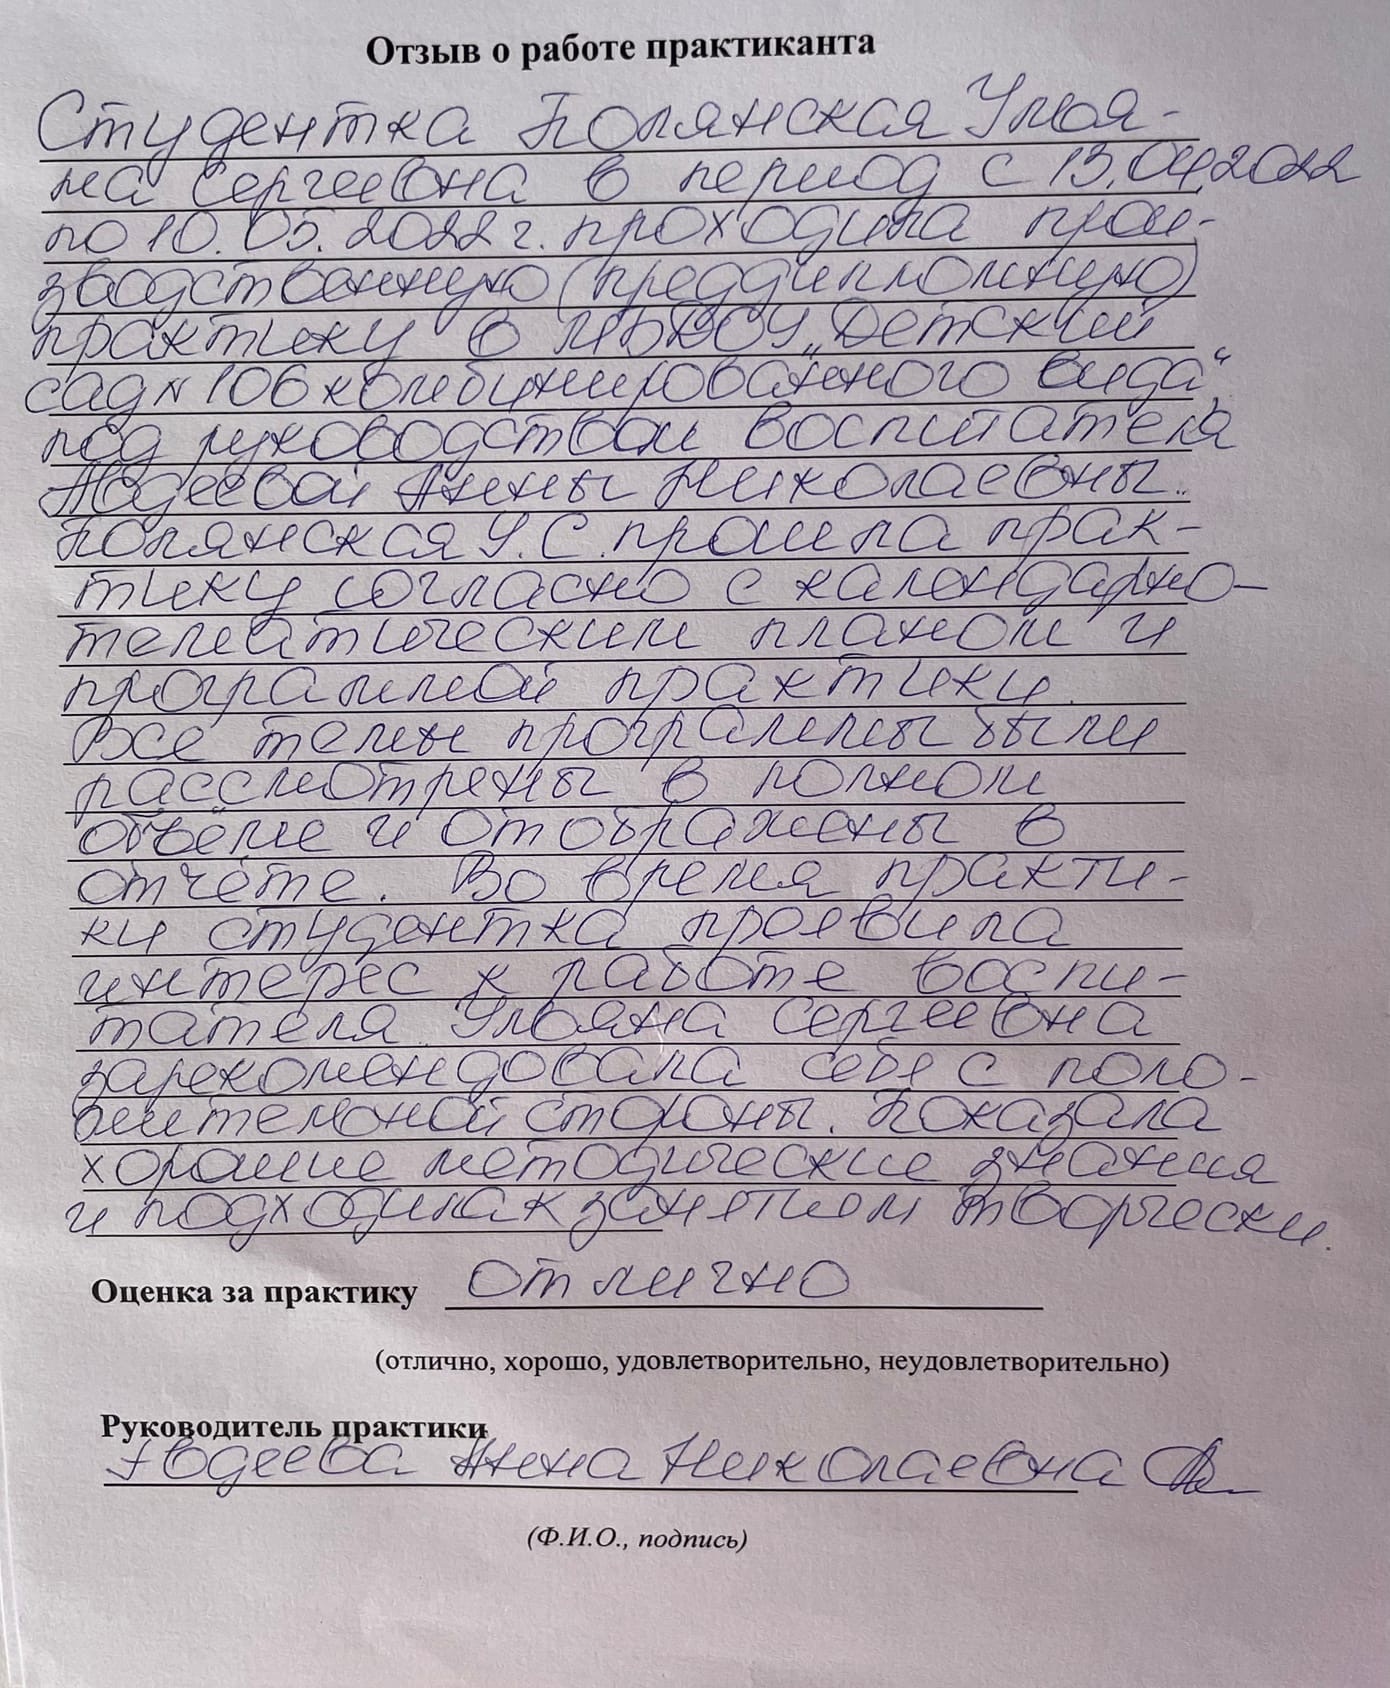 Отзыв о работе практиканта
Студентка Полянская Улья-
на Сергеевна в период с 13.04.2022
по 10.05.2022 г. проходила прои-
зводственную (преддипломную)
практику в МБДОУ „Детский
сад № 106 комбинированного вида“
под руководством воспитателя
Авдеевой Анны Николаевны.
Полянская У.С. прошла прак-
тику согласно с календарно-
тематическим планом и
программой практики.
Все темы программы были
рассмотрены в полном
объёме и отображены в
отчёте. Во время практи-
ки студентка проявила
интерес к работе воспи-
тателя. Ульяна Сергеевна
зарекомендовала себя с поло-
жительной стороны. Показала
хорошие методические знания
и подходила к занятиям творчески.
Оценка за практику отлично
(отлично, хорошо, удовлетворительно, неудовлетворительно)
Руководитель практики
Авдеева Анна Николаевна
(Ф.И.О., подпись)